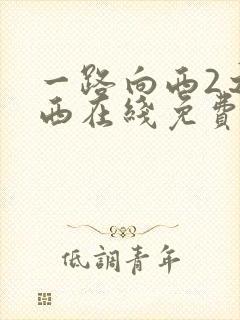 一路向西2
西在线免費
低調青年